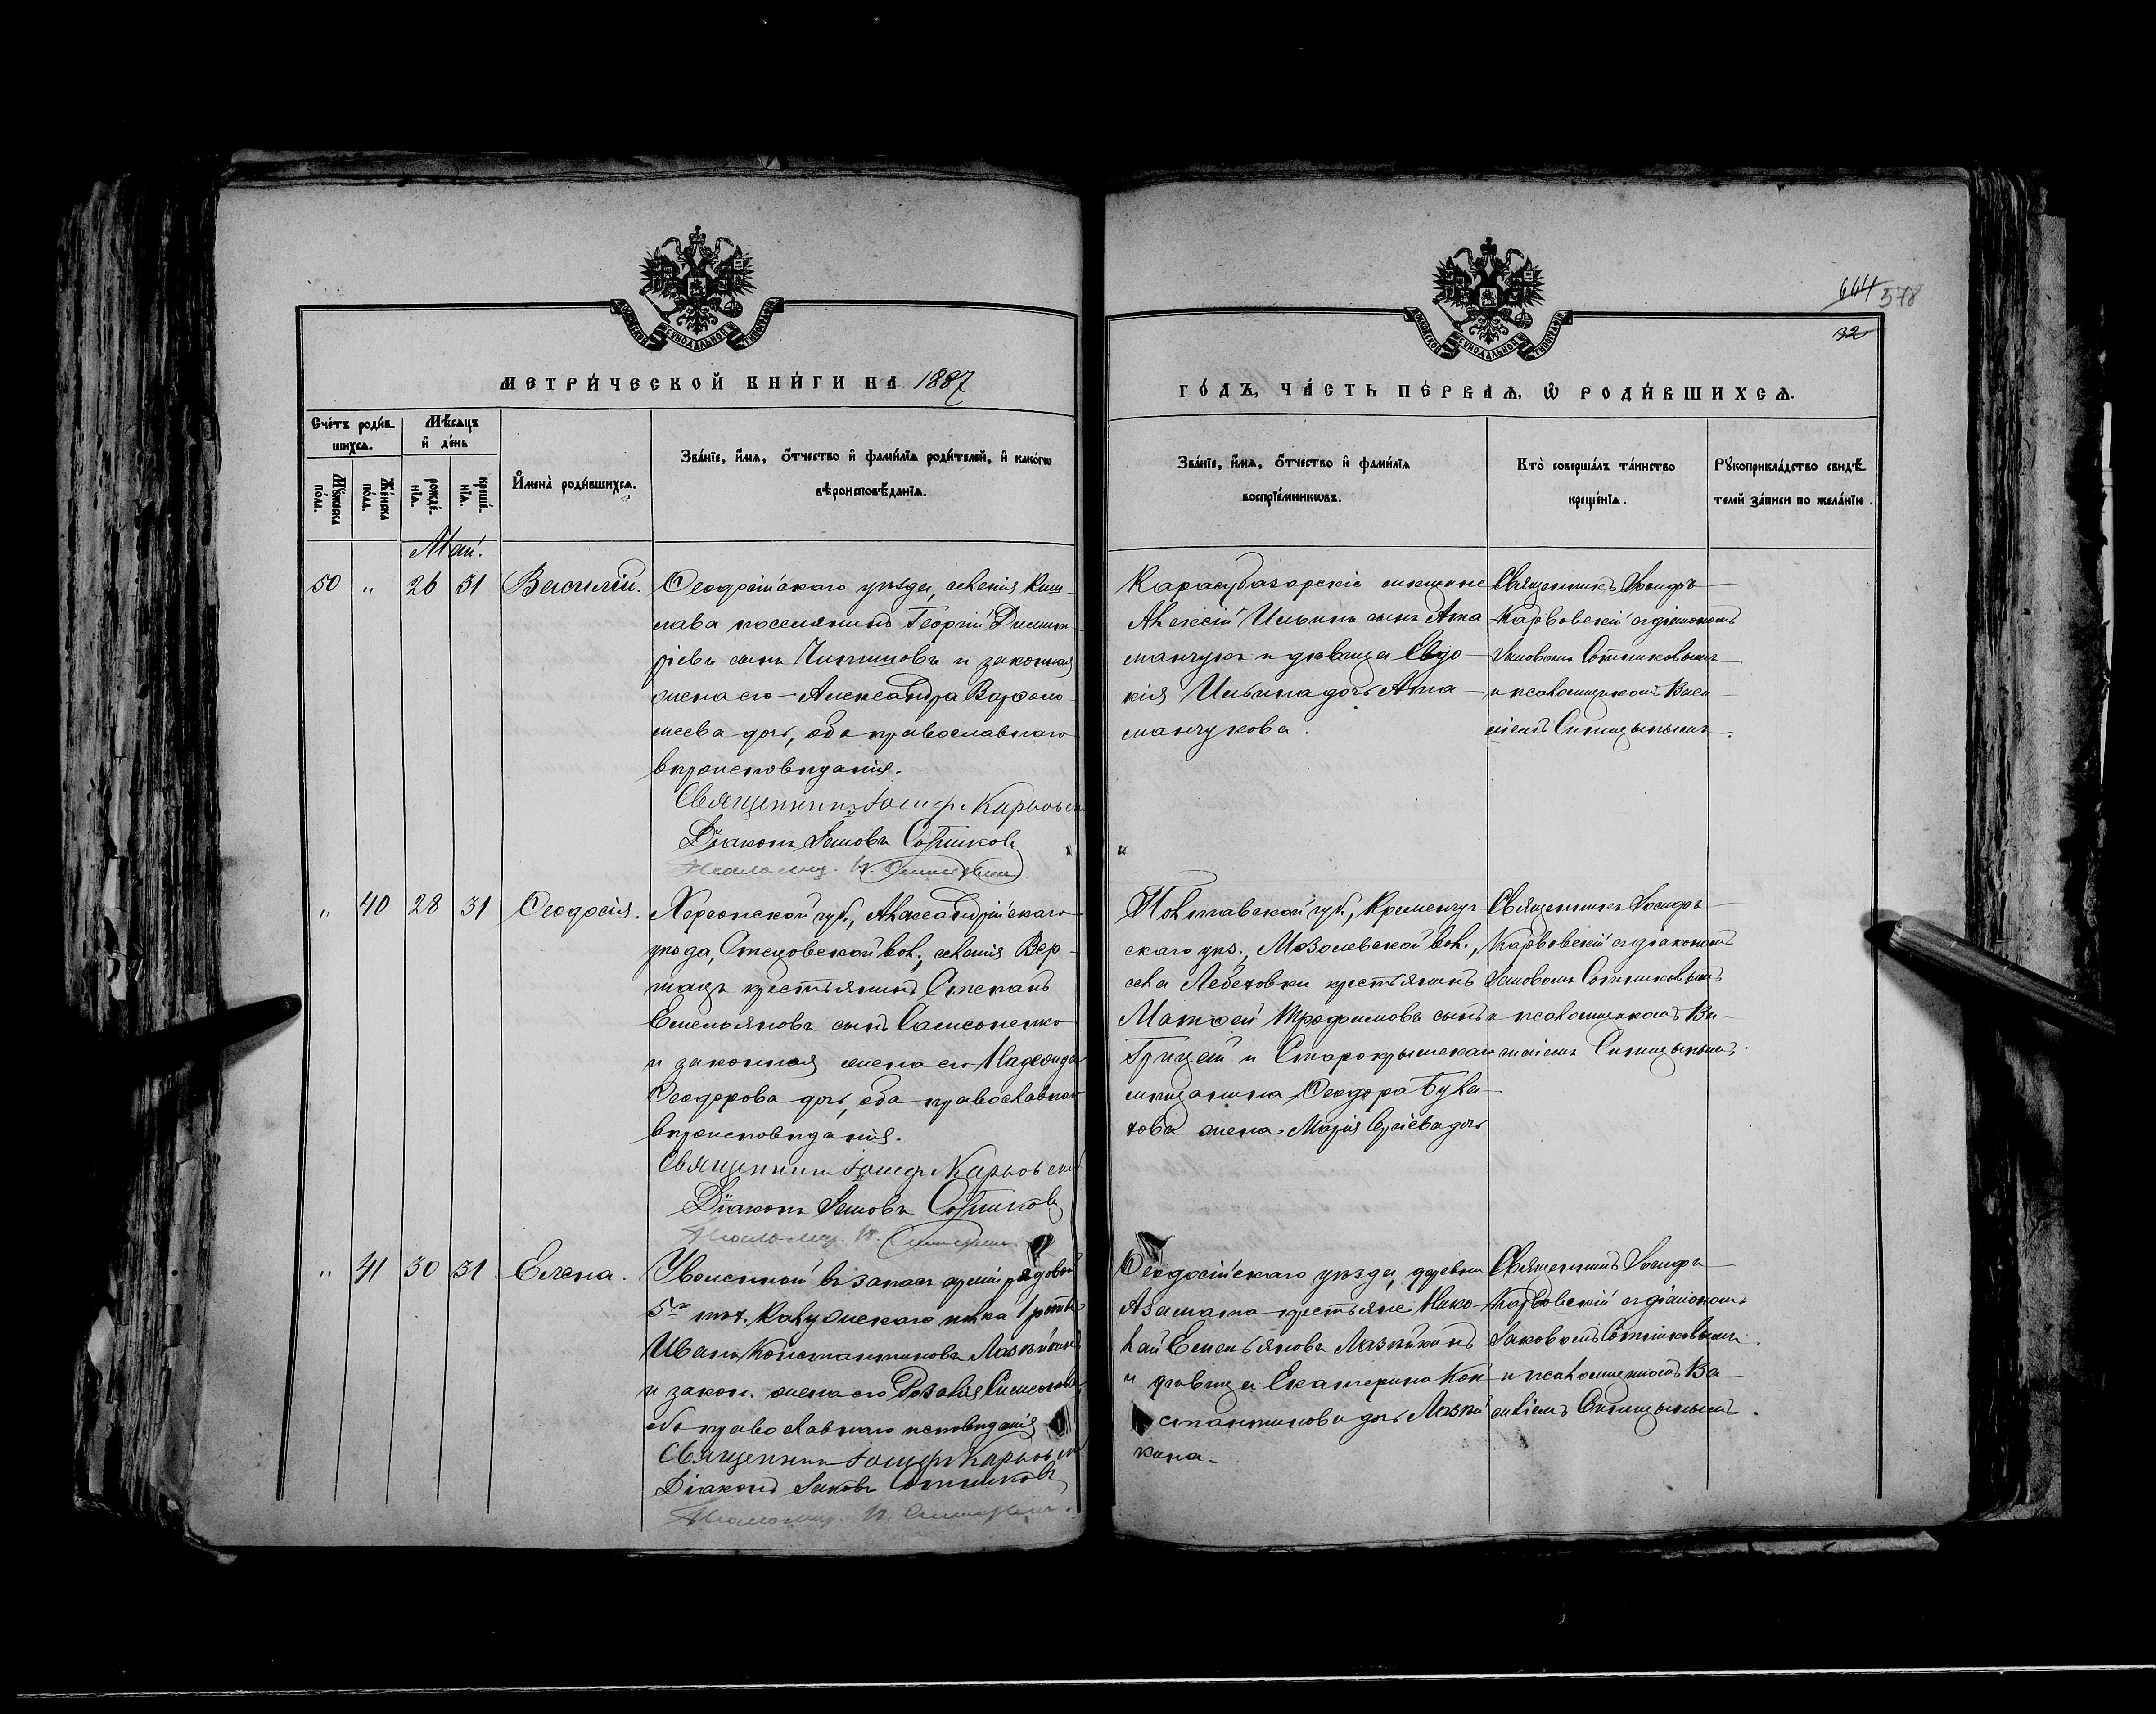 664 578
32
МОСКОВСКОЙ СѴНОДАЛЬНОЙ ТИПОГРАФІИ
МОСКОВСКОЙ СѴНОДАЛЬНОЙ ТИПОГРАФІИ
МЕТРИ́ЧЕСКОЙ КНИ́ГИ НА 1887
ГО́ДЪ, ЧА́СТЬ ПЕ́РВАѦ, Ѽ РОДИ́ВШИХСѦ.
Сче́тъ роди́вшихсѧ.
Мѣ́сѧцъ и҆ де́нь
Мꙋ́жеска по́ла.
Же́нска по́ла.
рожде́нїѧ.
креще́нїѧ.
И҆мена̀ роди́вшихсѧ.
Зва́нїе, и҆́мѧ, о҆́тчество и҆ фами́лїѧ роди́телей, и҆ како́гѡ
вѣроисповѣ́данїѧ.
Зва́нїе, и҆́мѧ, о҆́тчество и҆ фами́лїѧ
воспрїе́мникѡвъ.
Кто̀ соверша́лъ та́инство
креще́нїѧ.
Рꙋкоприкла́дство свидѣ́телей за́писи по жела́нїю.
Май.
50 " 26 31 Василій.
Ѳеодосійскаго уѣзда, селенія Киш-
лава поселянинъ Георгій Димит-
ріевъ сынъ и законная
жена его Александра Варѳоло-
меева дочь, оба православнаго
вѣроисповѣданія.
Священникъ Іосифъ Карвовскій
Діаконъ Іаковъ Сотниковъ
Псаломщ. В. Синицынъ
Карасубазарскіе мѣщане
Алексѣй Ильинъ сынъ Ата
манчукъ и дѣвица Евдо
кія Ильина дочь Ата
манчукова.
Священникъ Іосифъ
Карвовскій съ діакономъ
Іаковомъ Сотниковымъ
и псаломщикомъ Васи
ліемъ Синицынымъ.
" 40 28 31 Ѳеодосія.
Херсонской губ., Александрійскаго
уѣзда, Стецовской вол., селенія Вер-
шацъ крестьянинъ Степанъ
Емельяновъ сынъ Самсоненко
и законная жена его
Ѳеодорова дочь, оба православнаго
вѣроисповѣданія.
Священникъ Іосифъ Карвовскій
Діаконъ Іаковъ Сотниковъ
Псаломщ. В. Синицынъ
Полтавской губ., Кременчуг-
скаго уѣз., вол.,
села крестьянинъ
Матѳей Трофимовъ сынъ
Грицай и Старокрымскаго
мѣщанина Ѳеодора
жена Марія дочь
Священникъ Іосифъ
Карвовскій съ діакономъ
Іаковомъ Сотниковымъ
и псаломщикомъ Ва-
силіемъ Синицынымъ.
" 41 30 31 Елена.
Уволенный въ запасъ арміи рядовой
5го пѣх. Калужскаго полка 1 роты
Иванъ Константиновъ
и закон. жена его
оба православнаго исповѣданія
Священникъ Іосифъ Карвовскій
Діаконъ Іаковъ Сотниковъ
Псаломщ. В. Синицынъ.
Ѳеодосійскаго уѣзда, деревни
Азамата крестьяне Нико-
лай Емельяновъ
и дѣвица Екатерина Кон
стантинова дочь
кина.
Священникъ Іосифъ
Карвовскій съ діакономъ
Іаковомъ Сотниковымъ
и псаломщикомъ Ва
силіемъ Синицынымъ.